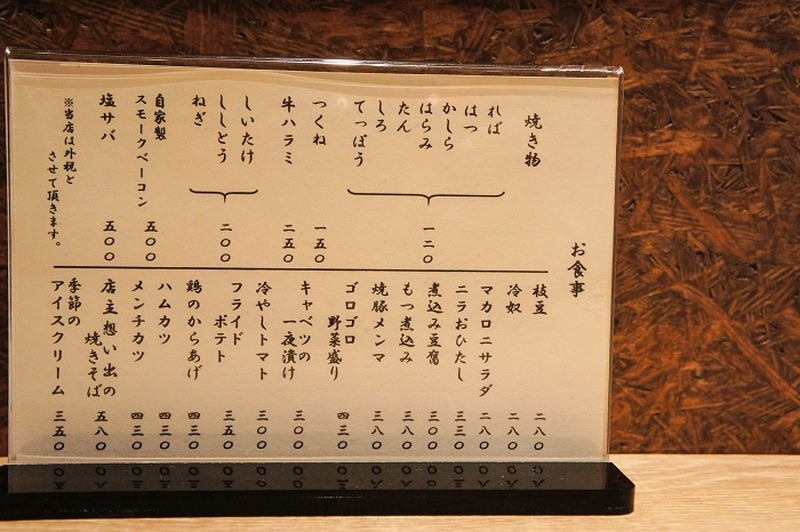 お食事
焼き物
れば
はつ
かしら
はらみ
たん
しろ
てっぽう
一二〇
つくね
一五〇
牛ハラミ
二五〇
しいたけ
ししとう
ねぎ
二〇〇
自家製
スモークベーコン
五〇〇
塩サバ
五〇〇
※当店は外税と
させて頂きます。
枝豆 二八〇
冷奴 二八〇
マカロニサラダ 二八〇
ニラおひたし 三三〇
煮込み豆腐 三〇〇
もつ煮込み 三八〇
焼豚メンマ 三八〇
ゴロゴロ
野菜盛り 四三〇
キャベツの
一夜漬け 三〇〇
冷やしトマト 三〇〇
フライド
ポテト 三五〇
鶏のからあげ 四三〇
ハムカツ 四三〇
メンチカツ 四三〇
店主想い出の
焼きそば 五八〇
季節の
アイスクリーム 三五〇